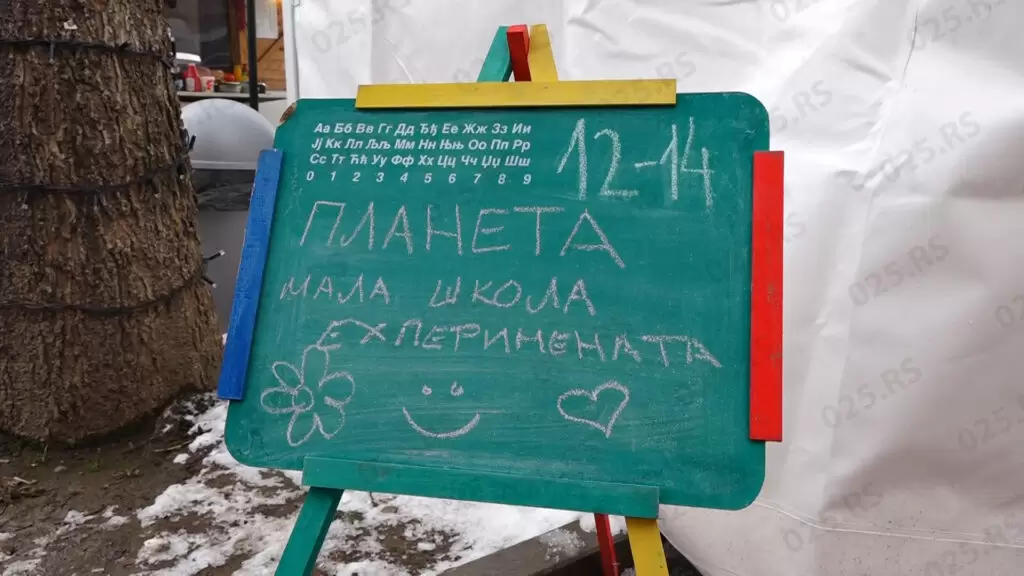 Аа Бб Вв Гг Дд Ђђ Ее Жж Зз Ии
Јј Кк Лл Љљ Мм Нн Њњ Оо Пп Рр
Сс Тт Ћћ Уу Фф Хх Цц Чч Џџ Шш
0 1 2 3 4 5 6 7 8 9
12-14
ПЛАНЕТА
МАЛА ШКОЛА
ЕХПЕРИМЕНАТА
025.RS
025.RS
025.RS
025.RS
025.RS
025.RS